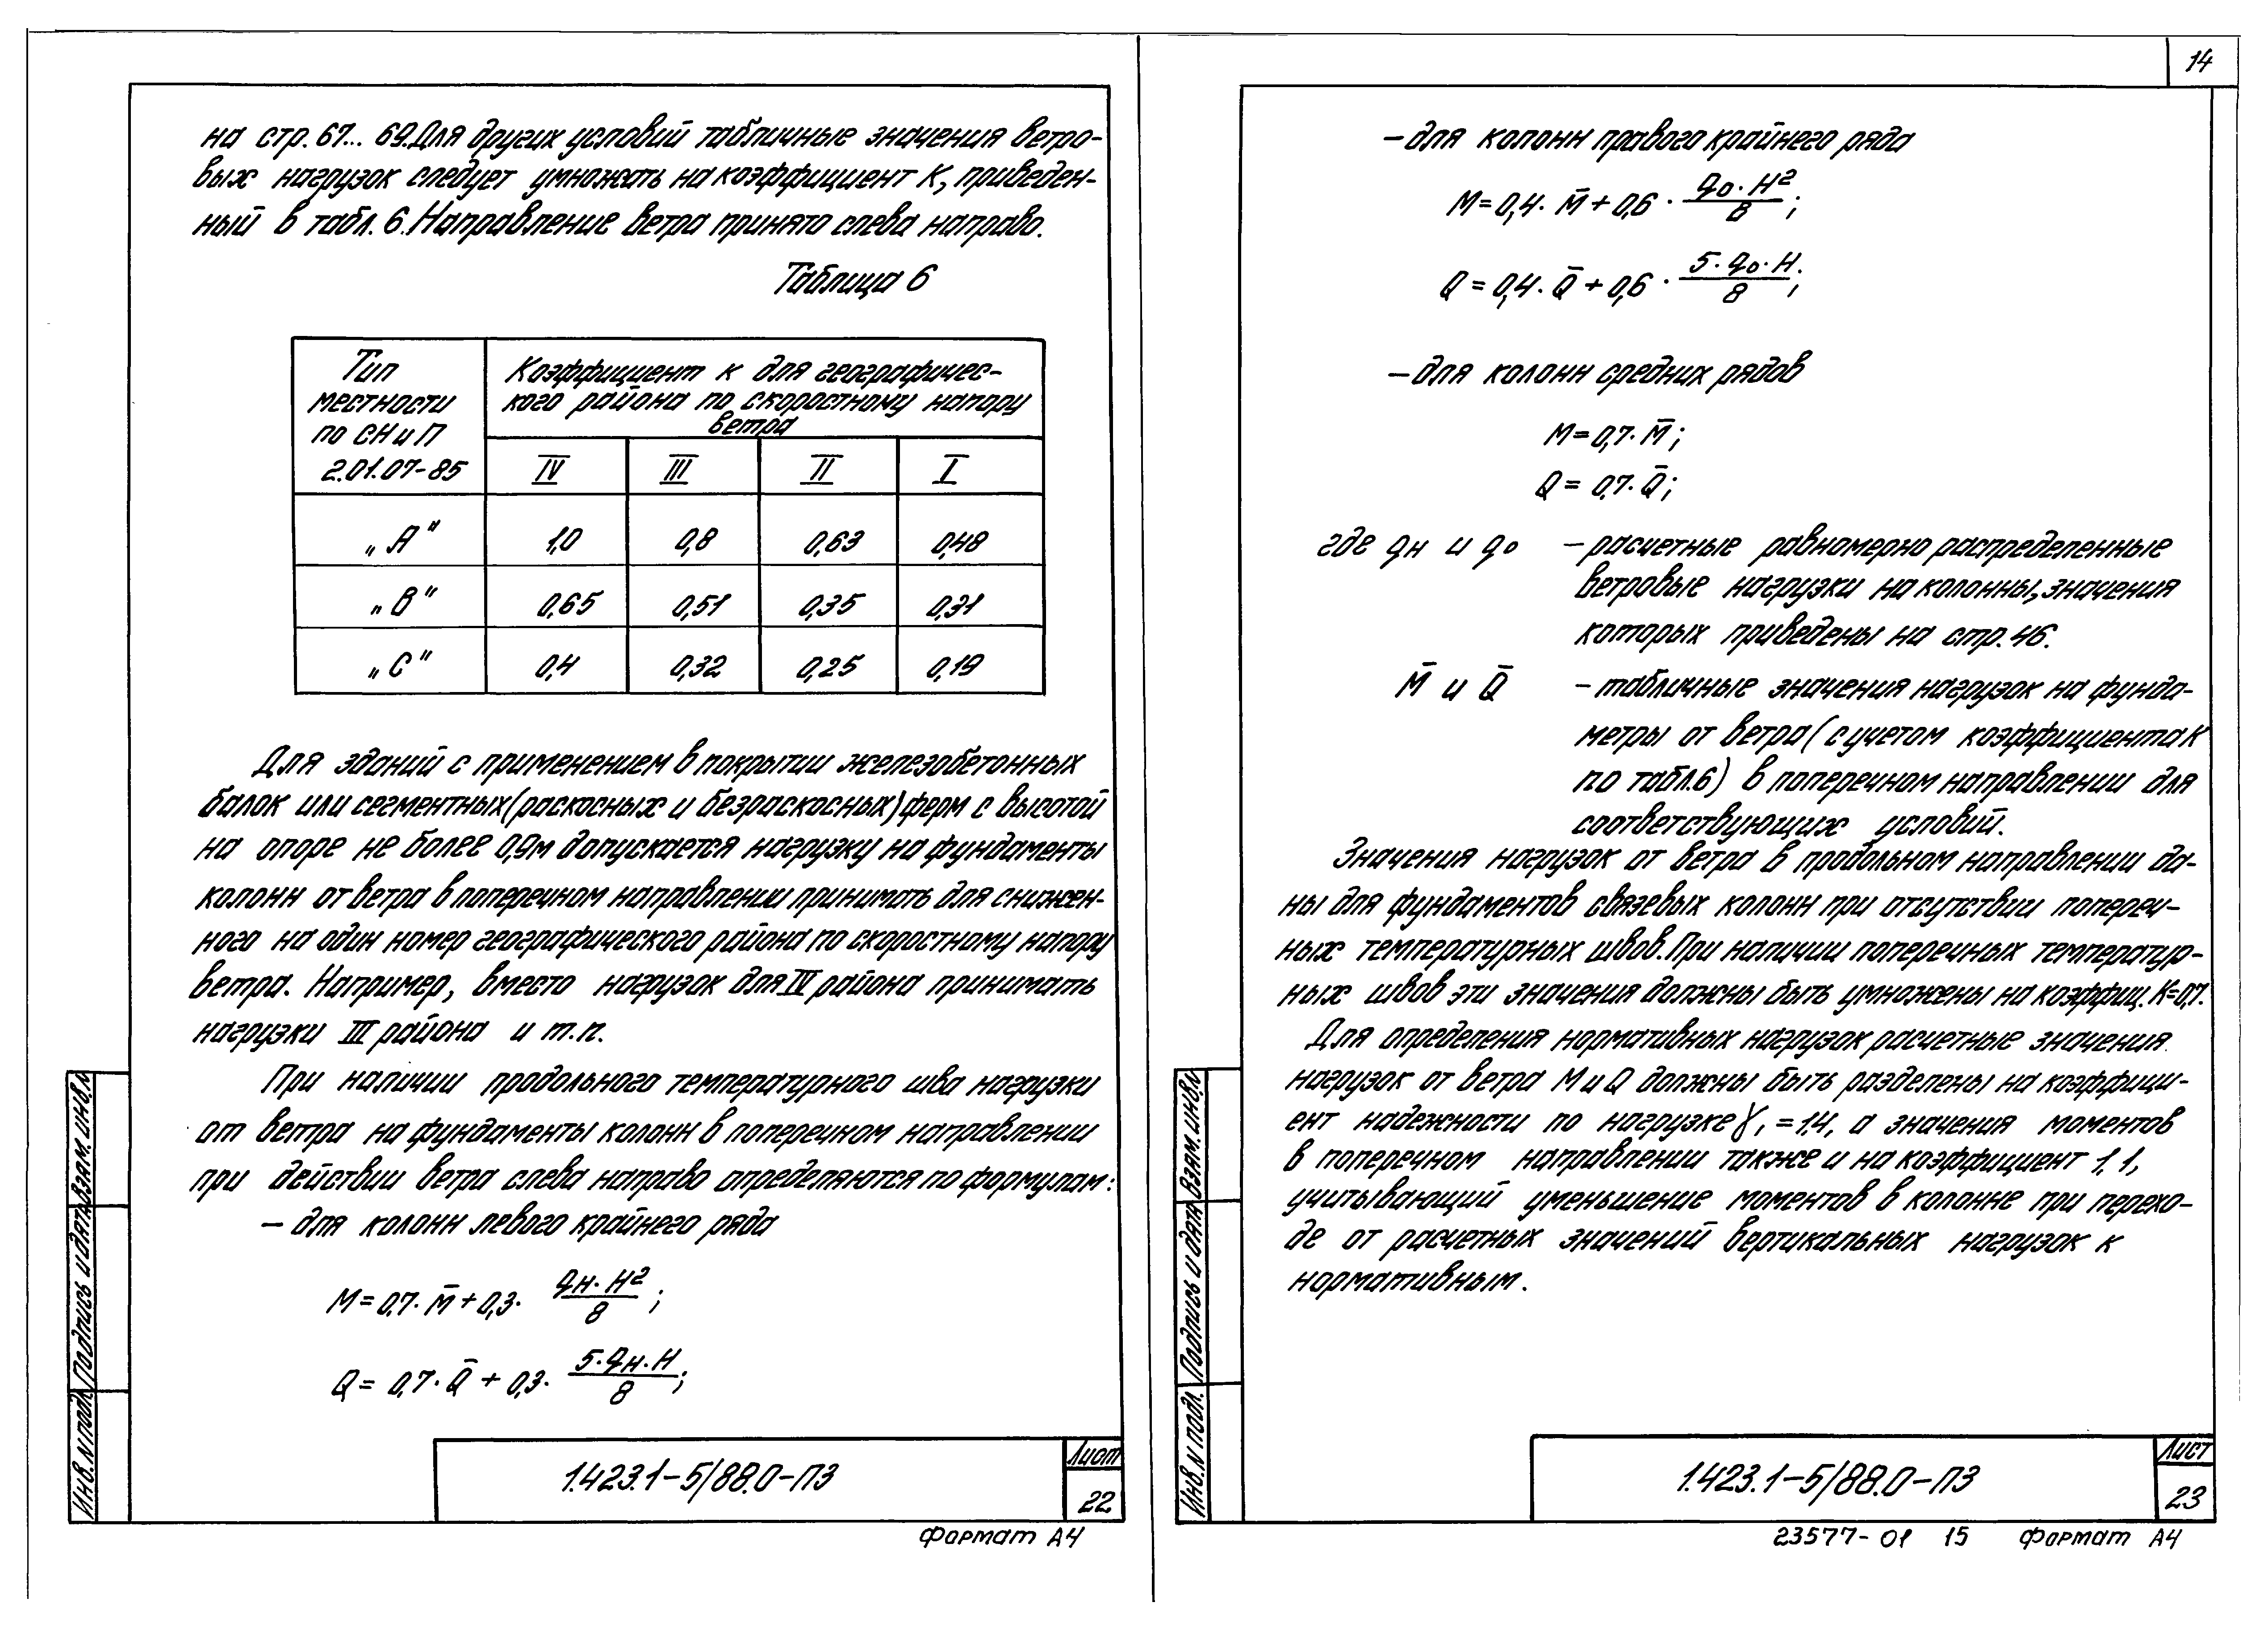 на стр. 67... 69. Для других условий табличные значения ветро-
вых нагрузок следует умножать на коэффициент К, приведен-
ный в табл. 6. Направление ветра принято слева направо.
Таблица 6
Тип местности по СНиП 2.01.07-85
Коэффициент к для географичес-
кого района по скоростному напору
ветра
IV III II I
„А" 1,0 0,8 0,63 0,48
„В" 0,65 0,51 0,35 0,31
„С" 0,4 0,32 0,25 0,19
Для зданий с применением в покрытии железобетонных
балок или сегментных (раскосных и безраскосных) ферм с высотой
на опоре не более 0,9м допускается нагрузку на фундаменты
колонн от ветра в поперечном направлении принимать для снижен-
ного на один номер географического района по скоростному напору
ветра. Например, вместо нагрузок для IV района принимать
нагрузки III района и т.п.
При наличии продольного температурного шва нагрузки
от ветра на фундаменты колонн в поперечном направлении
при действии ветра слева направо определяются по формулам:
– для колонн левого крайнего ряда
M = 0,7 · M̄ + 0,3 · qн · H²/8 ;
Q = 0,7 · Q̄ + 0,3 · 5 · qн · H/8 ;
Инв. N подл. Подпись и дата Взам. инв. N
1.423.1-5/88.0-ПЗ
Лист
22
Формат А4
14
– для колонн правого крайнего ряда
M = 0,4 · M̄ + 0,6 · qо · H²/8 ;
Q = 0,4 · Q̄ + 0,6 · 5 · qо · H/8 ;
– для колонн средних рядов
M = 0,7 · M̄ ;
Q = 0,7 · Q̄ ;
где qн и qо – расчетные равномерно распределенные
ветровые нагрузки на колонны, значения
которых приведены на стр. 46.
M̄ и Q̄ – табличные значения нагрузок на фунда-
метры от ветра (с учетом коэффициента К
по табл.6) в поперечном направлении для
соответствующих условий.
Значения нагрузок от ветра в продольном направлении да-
ны для фундаментов связевых колонн при отсутствии попереч-
ных температурных швов. При наличии поперечных температур-
ных швов эти значения должны быть умножены на коэффиц. К=0,7.
Для определения нормативных нагрузок расчетные значения
нагрузок от ветра М и Q должны быть разделены на коэффици-
ент надежности по нагрузке γ₁ = 1,4, а значения моментов
в поперечном направлении также и на коэффициент 1,1,
учитывающий уменьшение моментов в колонне при перехо-
де от расчетных значений вертикальных нагрузок к
нормативным.
Инв. N подл. Подпись и дата Взам. инв. N
1.423.1-5/88.0-ПЗ
Лист
23
23577-01 15 Формат А4